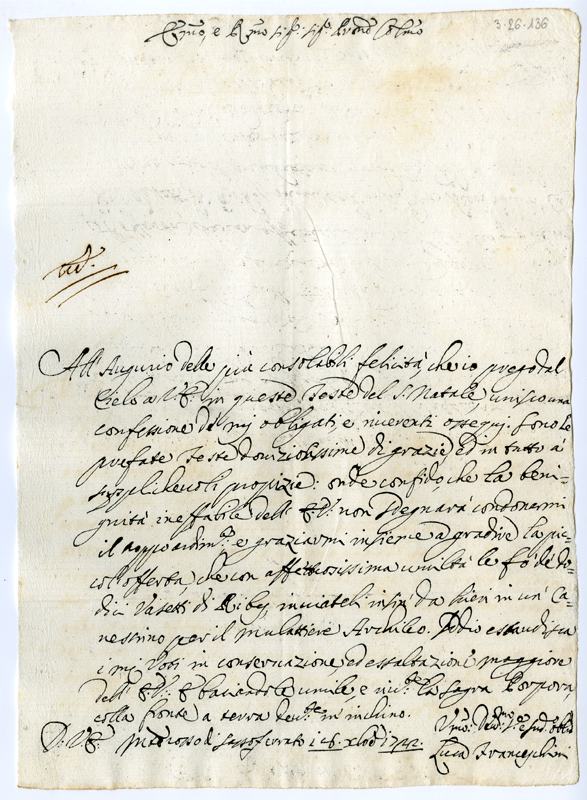 3-26-136
Em̃o, e Rm̃o Sig.r Sig.r Pron̄e Colm̃o
All'Augurio delle più consolabili felicità che io prego dal
Cielo a V.E. in queste Feste del S. Natale, unisco una
confessione de miei obbligati e riverenti ossequj. Sono le
prefate Feste doviziosissime di grazie ed in tutto a
supplichevoli propizie: onde confido, che la beni=
gnità ineffabile dell' E.V. non sdegnarà condonarmi
il e graziarmi insieme a gradire la pic=
col'offerta, che con affettuosissima umiltà le fò de do=
dici Vasetti di Ribes, inviateli insin da hieri in un' Ca=
nestrino per il mulattiere Archileo. Iddio essaudisca
i miei Voti in conservazione, ed essaltazione maggiore
dell' E.V. E baciandole umile e la Sagra Porpora
colla fronte a terra m'inchino.
D. V.E. Sassoferrato 16 Xbre 1722.
Luca Franceschini